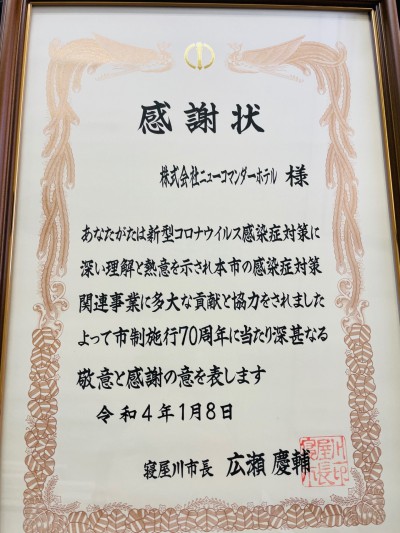 感謝状
株式会社ニューコマンダーホテル 様
あなたがたは新型コロナウイルス感染症対策に
深い理解と熱意を示され本市の感染症対策
関連事業に多大な貢献と協力をされました
よって市制施行70周年に当たり深甚なる
敬意と感謝の意を表します
令和4年1月8日
寝屋川市長 広瀬 慶輔